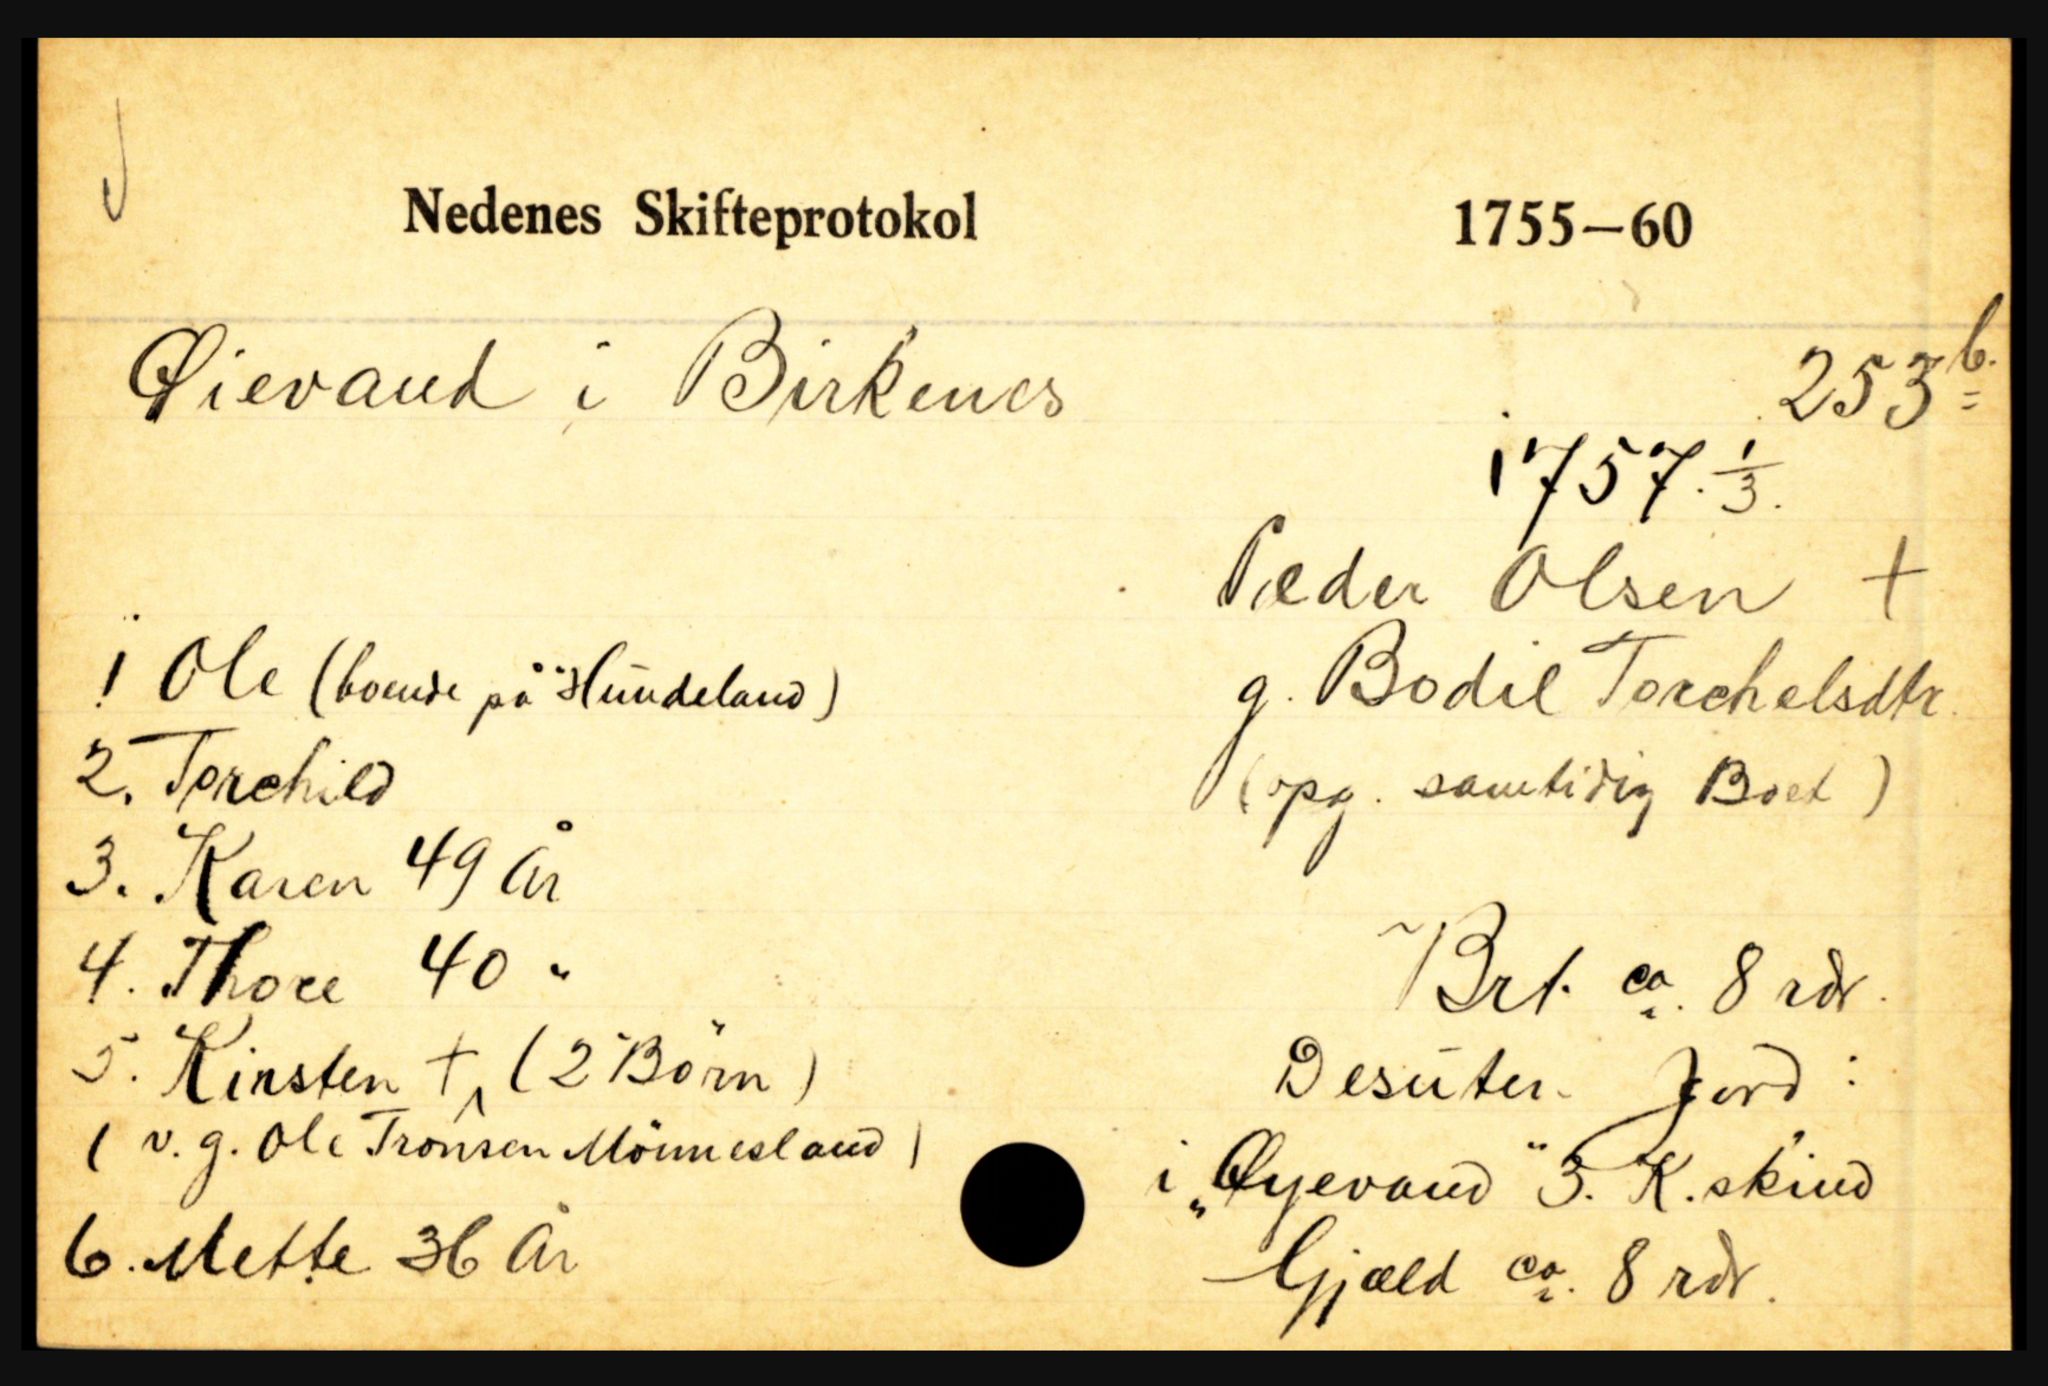 Nedenes Skifteprotokol 1755—60
Øievand i Birkenes 253 b.
1757. 1/3.
Peder Olsen +
g. Bodil Torchelsdtr.
(opg. samtidig Boet)
1 Ole (boende på "Hundeland)
2. Torchild
3. Karen 49 År
4. Thore 40 "
5. Kirsten + (2 Börn)
( v. g. Ole Tronsen Mönnesland)
6. Mette 36 År
Brt. ca. 8 rdr.
Desuten Jord:
i „Øyevand" 3. K. skind
Gjæld ca. 8 rdr.